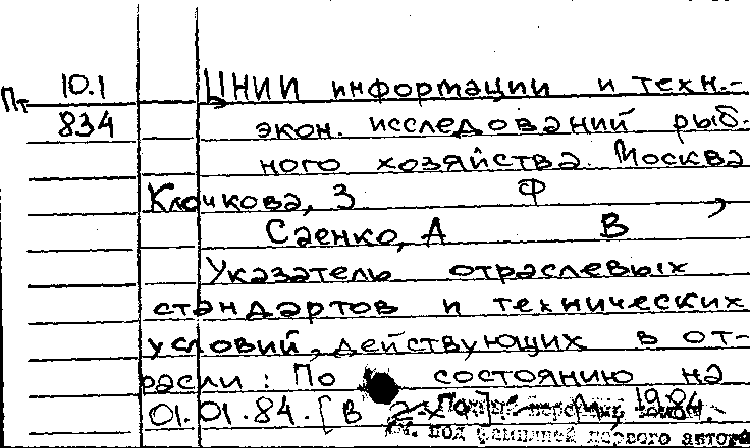 10.1 ЦНИИ информации и техн.-
Пт 834 экон. исследований рыб-
ного хозяйства. Москва
Клочкова, З Ф
Саенко, А В ,
Указатель отраслевых
стандартов и технических
условий, действующих в от-
расли: По состоянию на
01.01.84. [В М., 1984.
см. под фамилией первого автора